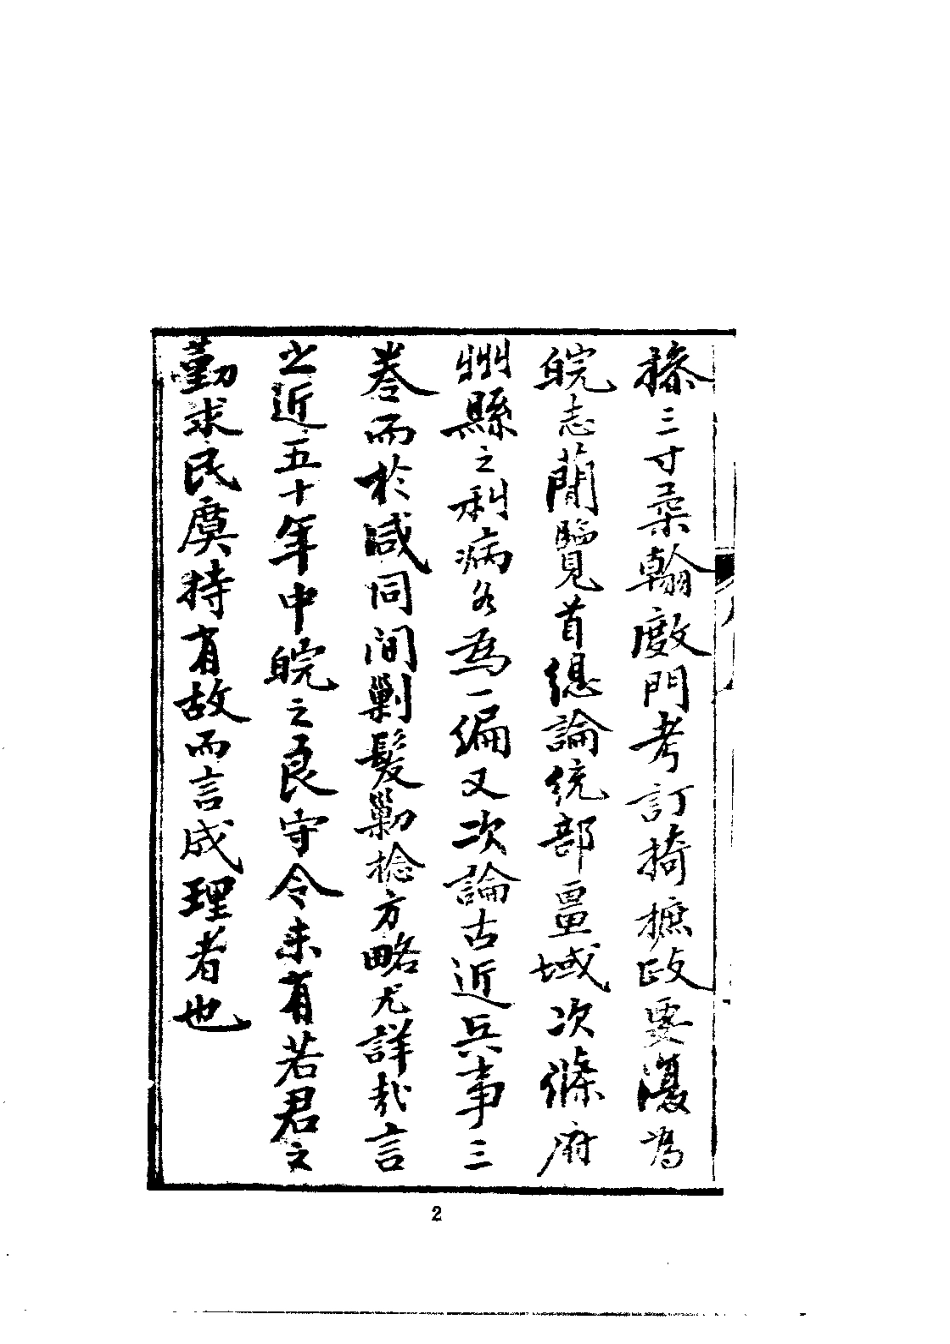 椽三寸柔翰敭門考訂掎摭政要復為
皖志蕑覽首緫論統部畺域次條府
州縣之利病各為一編又次論古近兵事三
卷而於咸同間剿髮勦捻方略尤詳哉言
之近五十年中皖之良守令未有若君之
勤求民瘼持有故而言成理者也
2